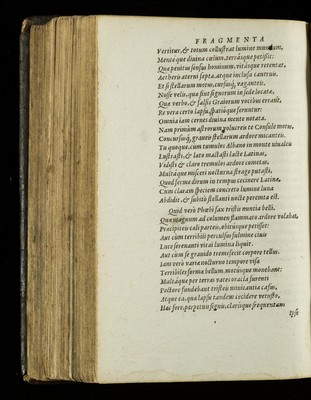 FRAGMENTA
Vertitur, & totum collustrat lumine mundum,
Menteque divina cœlum, terrásque petissit:
Quæ penitus sensus hominum, vitásque retentat,
Aetheris æterni septa, atque inclusa cauernis.
Et si stellarum motus, cursusq́; vagantes
Nosse velis, quæ sint signorum in sede locatæ,
Quæ verbo, & falsis Graiorum vocibus errant,
Re vera certo lapsu, spatióque feruntur:
Omnia iam cernes diuina mente notata.
Nam primùm astrorum volucreis te Consule motus,
Concursusq́, graueis stellarum ardore micanteis.
Tu quoque, cum tumulos Albano in monte niualeis
Lustrasti, & læto mactasti lacte Latinas,
Vidisti & claro tremulos ardore cometas.
Multáque misceri nocturna strage putasti,
Quòd fermè dirum in tempus cecinere Latinæ,
Cum claram speciem concreto lumine luna
Abdidit, & subitò stellanti nocte peremta est.
Quid verò Phœbi fax tristis nuntia belli,
Quæ magnum ad columen flammato ardore volabat,
Præcipiteis cæli parteis, obitúsque petisset:
Aut cùm terribili perculsus fulmine ciuis
Luce serenanti vitai lumina liquit.
Aut cùm se grauido tremefecit corpore tellus.
Iam verò variæ nocturno tempore visæ
Terribiles formæ bellum, motúsque monebant:
Multáque per terras vates oracla furenti
Pectore fundebant tristeis minitantia casus,
Atque ea, quæ lapsu tandem cecidere vetusto,
Hæc fore, perpetuis signis, clarisque frequentans
Ipse